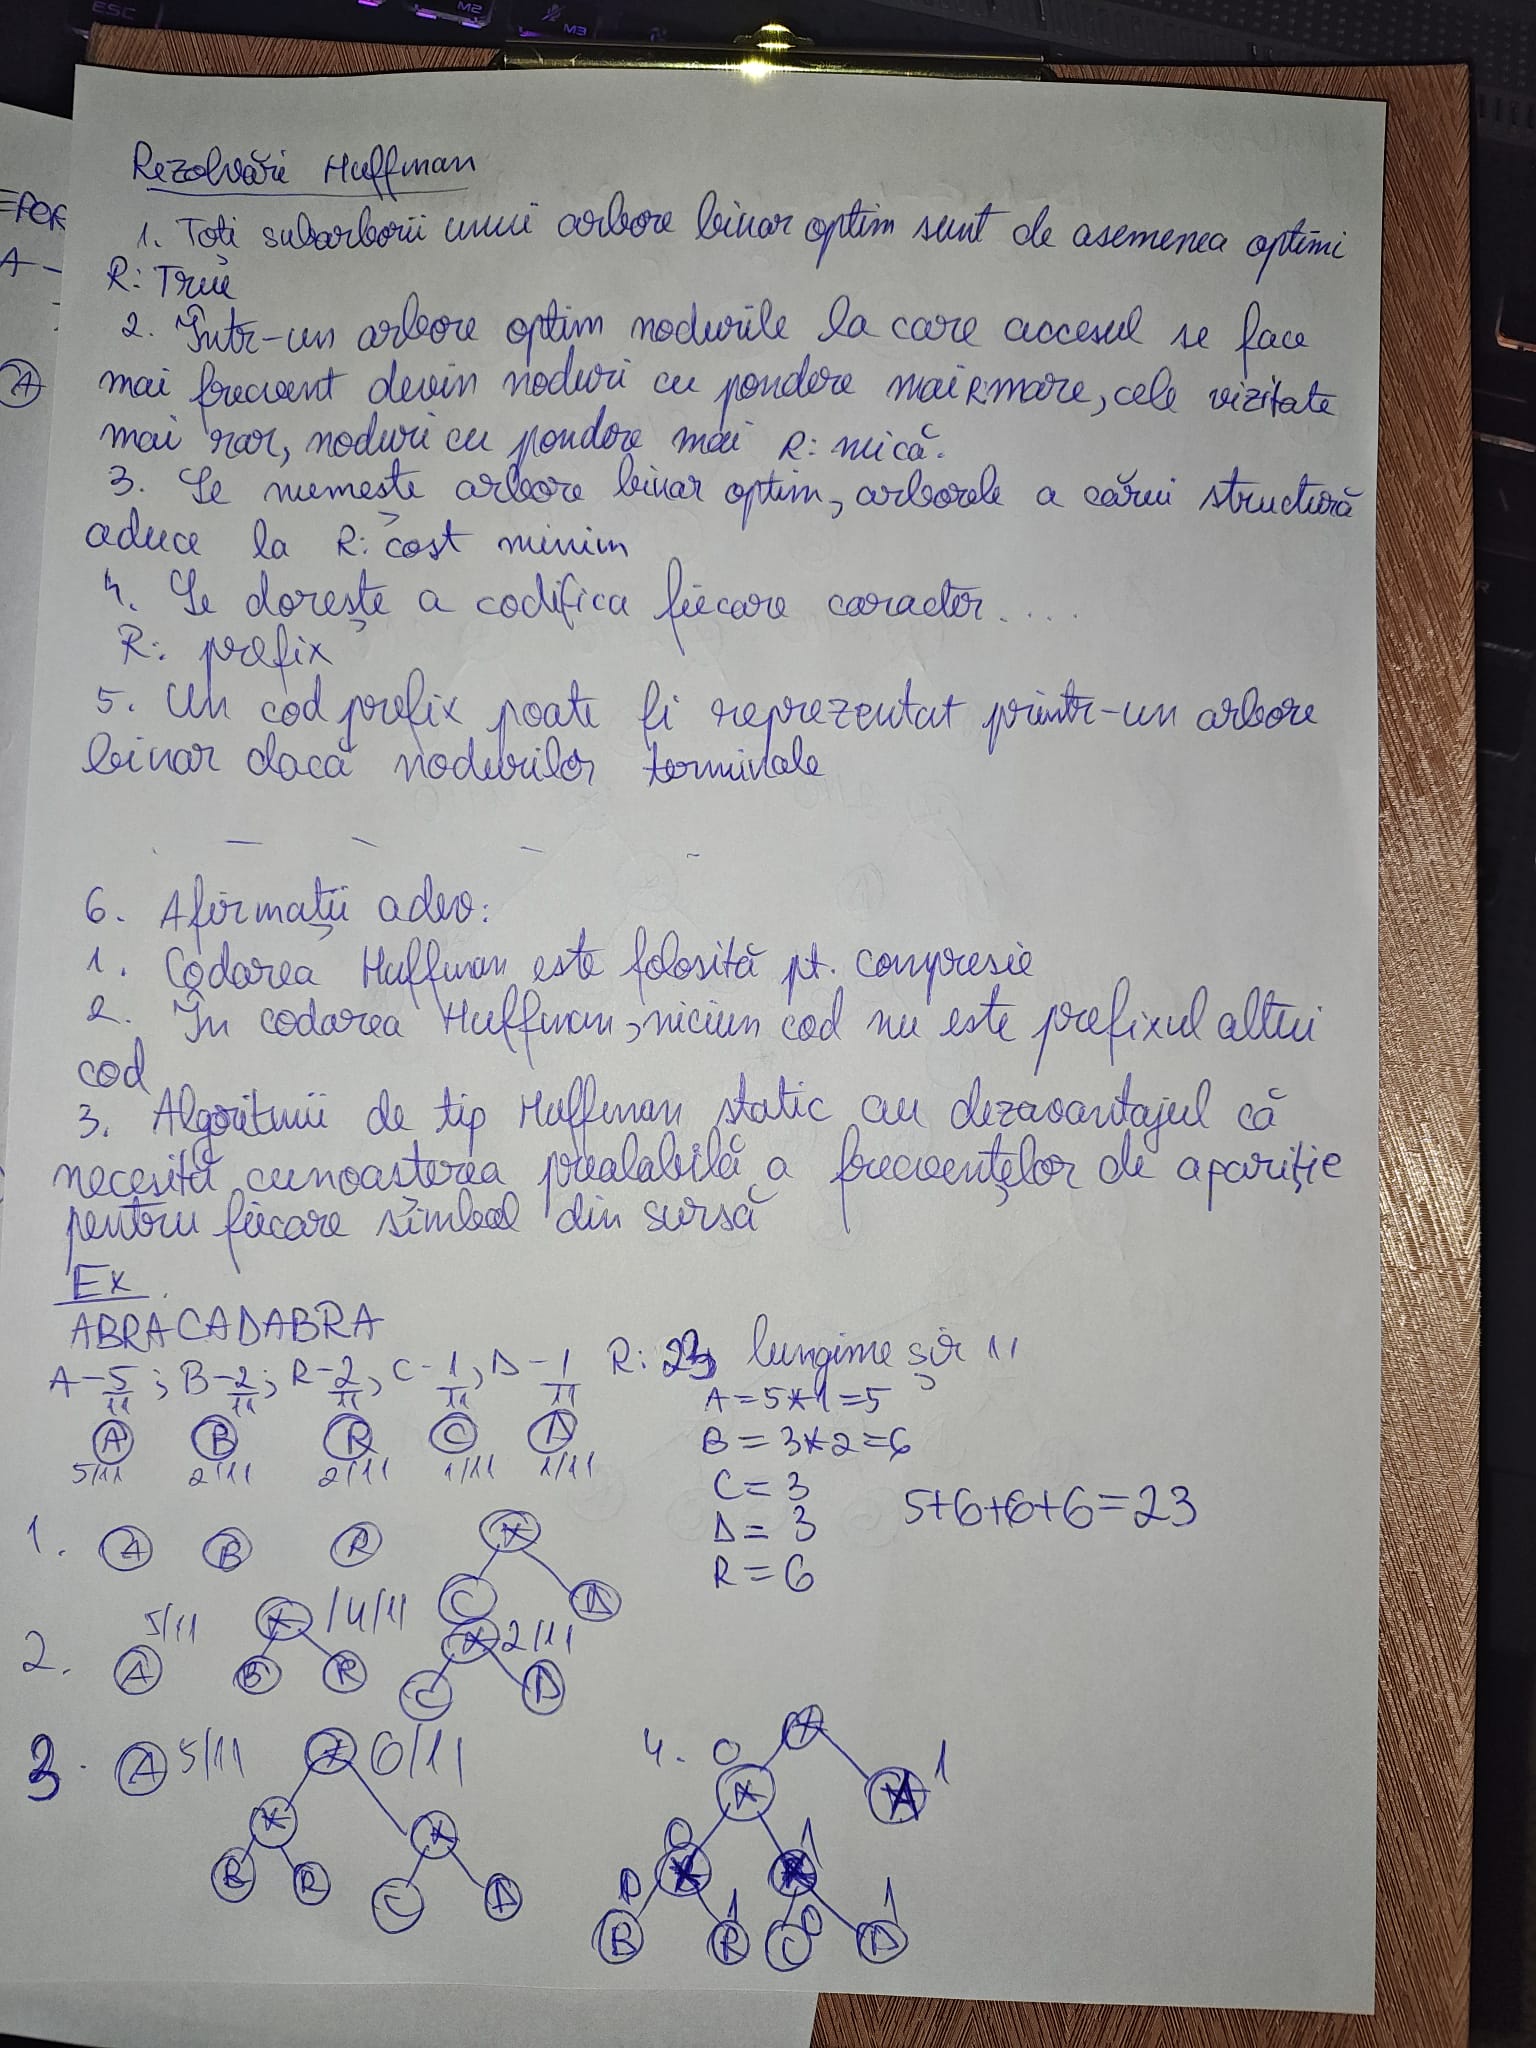 ESC
M2
M3
=FOR
A -
A
Rezolvări Huffman
1. Toți subarborii unui arbore binar optim sunt de asemenea optimi
R: True
2. Într-un arbore optim nodurile la care accesul se face
mai frecvent devin noduri cu pondere mai R: mare, cele vizitate
mai rar, noduri cu pondere mai R: mică.
3. Se numește arbore binar optim, arborele a cărui structură
aduce la R: cost minim
4. Se dorește a codifica fiecare caracter....
R: prefix
5. Un cod prefix poate fi reprezentat printr-un arbore
binar dacă nodurilor terminale
6. Afirmații adev:
1. Codarea Huffman este folosită pt. compresie
2. În codarea Huffman, niciun cod nu este prefixul altui
cod
3. Algoritmii de tip Huffman static au dezavantajul că
necesită cunoașterea prealabilă a frecvențelor de apariție
pentru fiecare simbol din sursă
Ex.
ABRACADABRA
A-5/11; B-2/11; R-2/11, C-1/11, D-1/11 R: 23 lungime șir 11
A = 5*1=5
A B R C D
5/11 2/11 2/11 1/11 1/11
B = 3*2=6
C = 3
D = 3
R = 6
5+6+6+6=23
1. A B R *
C D
2. 5/11 A * /4/11 * 2/11
B R C D
3. A 5/11 * 6/11
* *
B R C D
4. *
0 * A 1
0 * * 1
0 1 0 1
B R C D